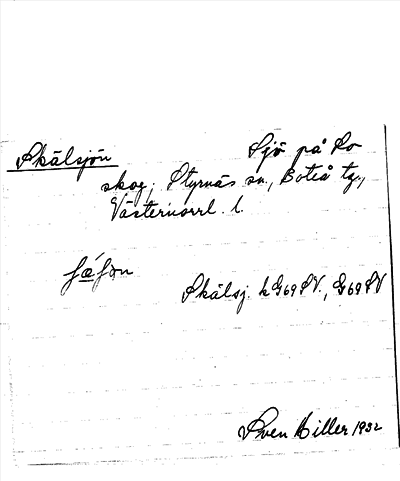 Skälsjön Sjö på Lo
skog, Styrnäs sn., Boteå tg.,
Västernorrl. l.
Skälsj. k G69SV., G69SV
Sven Hiller 1932